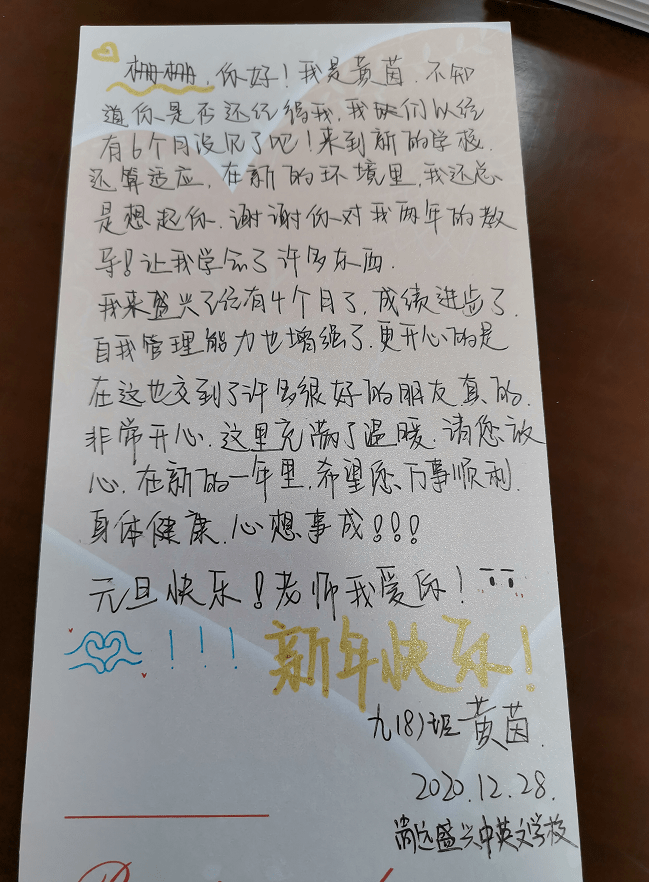 栅栅，你好！我是黄茵，不知
道你是否还记得我，我们以经
有6个月没见了吧！来到新的学校
还算适应，在新的环境里，我还总
是想起你，谢谢你对我两年的教
导！让我学会了许多东西．
我来盛兴已经有4个月了，成绩进步了，
自我管理能力也增强了，更开心的是
在这也交到了许多很好的朋友，真的，
非常开心，这里充满了温暖，请您放
心，在新的一年里，希望您万事顺利，
身体健康，心想事成！！！
元旦快乐！老师我爱你！
！！！新年快乐！
九(8)班黄茵．
2020.12.28.
尚远盛兴中英文学校